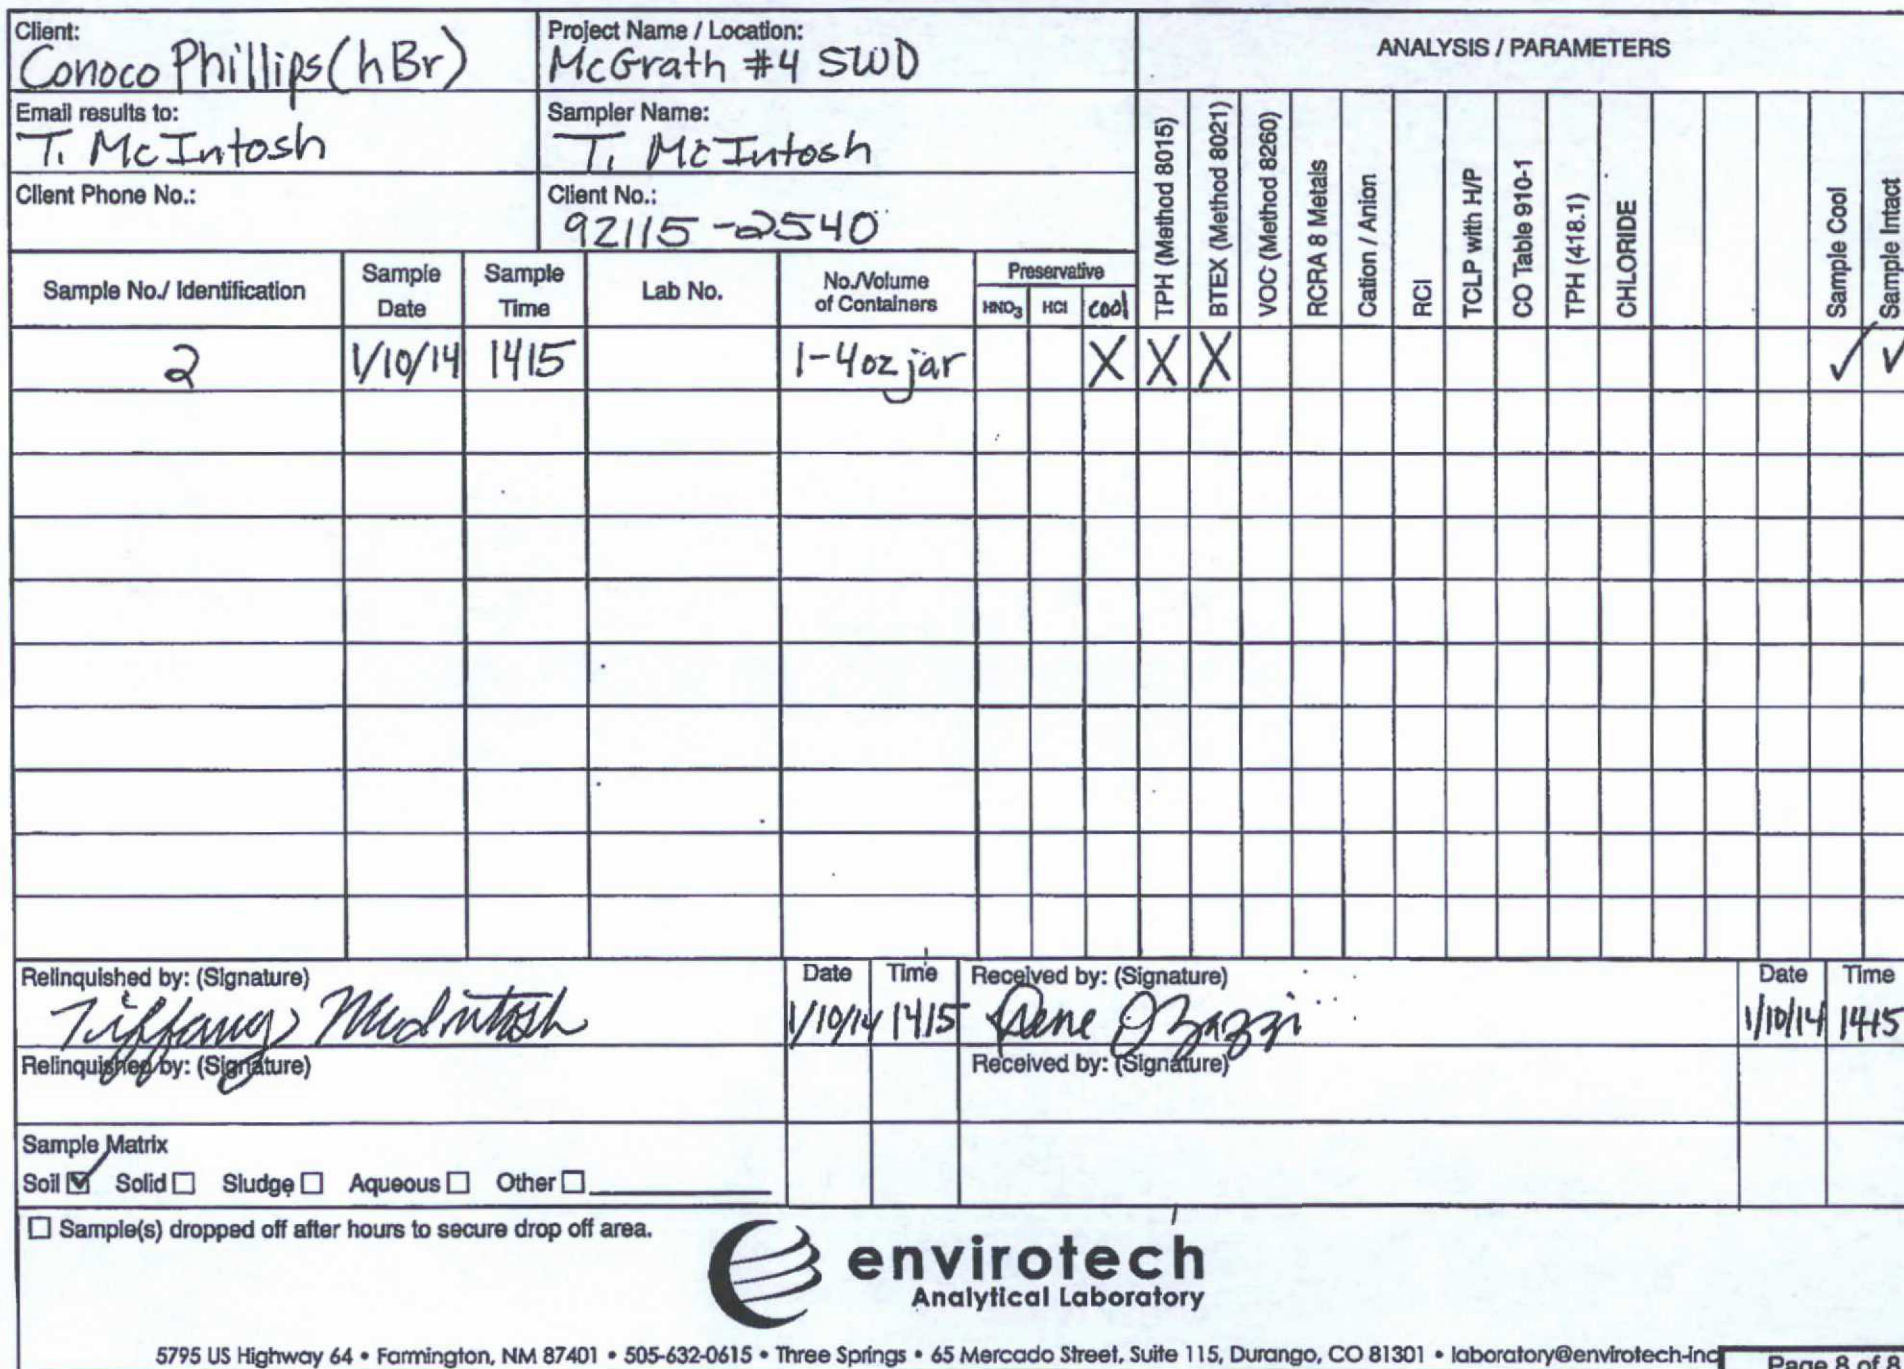 Client:
Conoco Phillips (hBr)
Project Name / Location:
McGrath #4 SWD
ANALYSIS / PARAMETERS
Email results to:
T. McIntosh
Sampler Name:
T. McIntosh
Client Phone No.:
Client No.:
92115-2540
Sample No./ Identification
Sample Date
Sample Time
Lab No.
No./Volume of Containers
Preservative
HNO3 HCl cool
TPH (Method 8015)
BTEX (Method 8021)
VOC (Method 8260)
RCRA 8 Metals
Cation / Anion
RCI
TCLP with H/P
CO Table 910-1
TPH (418.1)
CHLORIDE
Sample Cool
Sample Intact
2 1/10/14 1415 1-4oz jar X X X ✓ ✓
Relinquished by: (Signature) Date Time Received by: (Signature) Date Time
Tiffany McIntosh 1/10/14 1415 1/10/14 1415
Relinquished by: (Signature) Received by: (Signature)
Sample Matrix
Soil ☑ Solid ☐ Sludge ☐ Aqueous ☐ Other ☐
☐ Sample(s) dropped off after hours to secure drop off area.
envirotech
Analytical Laboratory
5795 US Highway 64 • Farmington, NM 87401 • 505-632-0615 • Three Springs • 65 Mercado Street, Suite 115, Durango, CO 81301 • laboratory@envirotech-inc
Page 8 of